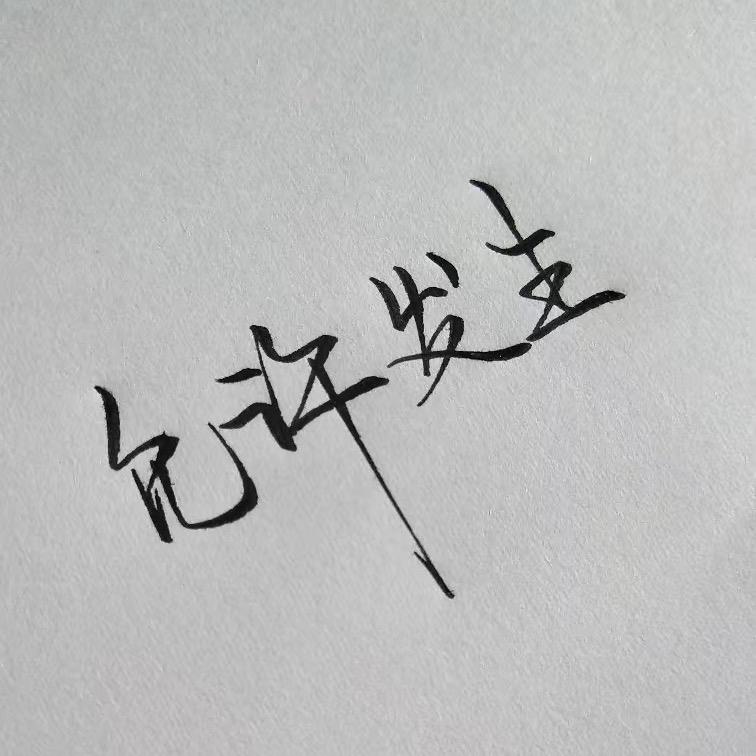 允许发生